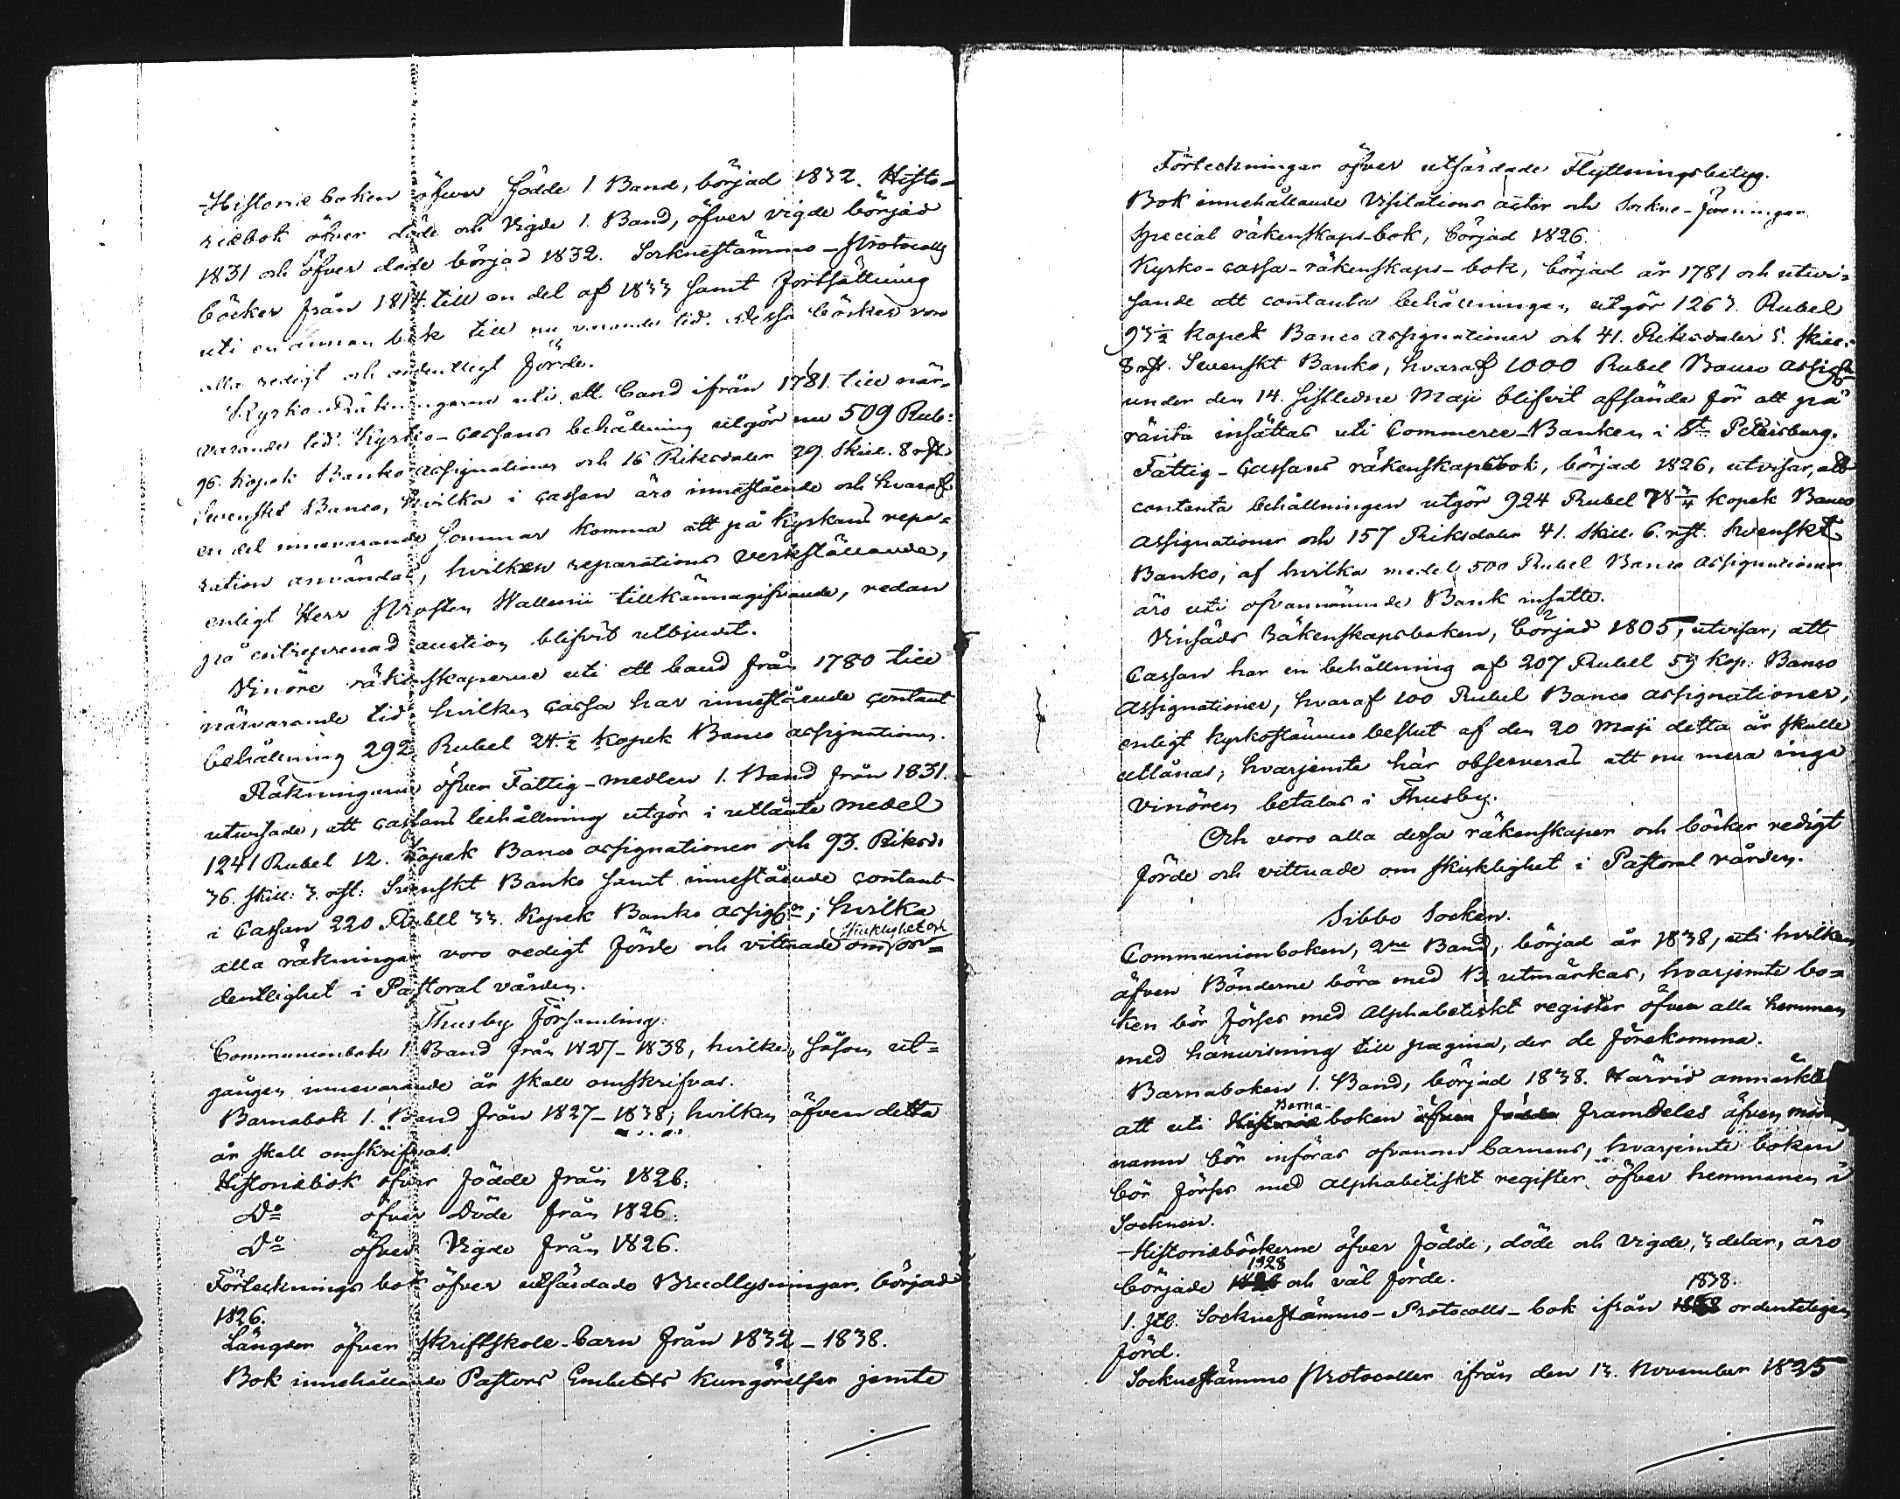 Historie boken öfver födde 1. Band, börjad 1832. Histo-
riebok öfver döde och Vigde 1. Band, öfver vigde börjad
1831 och öfver döde börjad 1832. Socknestämmo-Protocolls
böcker från 1814. till en del af 1833 samt fortsättning
uti en annan bok till nu varande tid. Dessa böcker voro
alla redigt och ordentligt förde.
Kyrko-Räkningarne uti ett band ifrån 1781. till när-
varande tid. Kyrko-Cassans behållning utgör nu 509 Rub:
96. Kopek Banko assignationer och 16 Riksdaler 29. Skill. 8 rst.
Svenskt Banco, hvilka i Cassan äro innestående och hvaraf
en del innevarande Sommar komma att på Kyrkans repa-
ration användas, hvilken reparations verkställande,
enligt Herr Prosten Wallenii tillkännagifvande, redan
på entreprenad auction blifvit utbjudit.
Vinöre räkenskaperne uti ett band från 1780 till
närvarande tid hvilken Cassa har innestående contant
behållning 292 Rubel 24 1/2 Kopek Banco assignationer.
Räkningarne öfver Fattig-medlen 1. Band från 1831.
utvisade, att cassans behållning utgör i utlånte medel
1241 Rubel 12. Kopek Banco assignationer och 93. Riksd:
36. skill: 3. rst: Svenskt Banko samt innestående contant
i Cassan 220 Rubel 33. Kopek Banko assign; hvilka
alla räkningar voro redigt förde och vittnade om skicklighet och or-
dentlighet i Pastoral vården.
Thusby Församling.
Communionbok 1. Band från 1827-1838, hvilken såsom ut-
gången innevarande år skall omskrifvas.
Barnabok 1. Band från 1827-1838, hvilken äfven detta
år skall omskrifvas.
Historiebok öfver födde från 1826.
Do öfver Döde från 1826.
Do öfver Vigde från 1826.
Förtecknings bok öfver utfärdade Lysningar, börjad
1826.
Längder öfver Skriftskole-barn från 1832-1838.
Bok innehållande Pastors Embetets Kungörelser jemte
Förteckningar öfver utfärdade Flyttningsbetyg.
Bok innehållande Visitations acter och Sockne-föreningar.
Special räkenskaps-bok, börjad 1826.
Kyrko-cassa-räkenskaps-bok, börjad år 1781 och utvi-
sande att contanta behållningen utgör 1263. Rubel
93 1/2 kopek Banco assignationer och 41. Riksdaler 5. Skill.
8 rst. Svenskt Banko, hvaraf 1000 Rubel Banco assign
under den 14. sistledne Maji blifvit afsände för att på
ränta insättas uti Commerce-Banken i St Petersburg.
Fattig-Cassans räkenskapsbok, börjad 1826, utvisar, att
contanta behållningen utgör 924 Rubel 78 3/4 kopek Banco
assignationer och 157 Riksdaler 41. Skill. 6. rst. Svenskt
Banko, af hvilka medel 500 Rubel Banco assignationer
äro uti ofvannämnde Bank insatte.
Vinsäds Räkenskapsboken, börjad 1805, utvisar, att
Cassan har en behållning af 207 Rubel 59 kop: Banco
assignationer, hvaraf 100 Rubel Banco assignationer,
enligt kyrkostämmo beslut af den 20 Maji detta år skulle
utlånas; hvarjemte här observeras att nu mera inga
vinören betalas i Thusby.
Och voro alla dessa räkenskaper och böcker redigt
förde och vittnade om skicklighet i Pastoral vården.
Sibbo Socken.
Communionboken, 2ne Band, börjad år 1838, uti hvilken
äfven Bönderne böra med B utmärkas, hvarjemte bo-
ken bör förses med Alphabetiskt register öfver alla hemman
med hänvisning till pagina, der de förekomma.
Barnaboken 1. Band, börjad 1838. Härvid anmärktes
att uti Barna-boken framdeles äfven
namn bör införas ofvanom barnens, hvarjemte boken
bör förses med alphabetiskt register öfver hemmanen i
Socknen.
Historieböckerne öfver födde, döde och vigde, 3 delar, äro
började 1828 och väl förde.
1. Socknestämmo-Protocolls-bok ifrån 1838. ordenteligen
förd.
Sockne​stämmo Protocoller ifrån den 13. November 1825